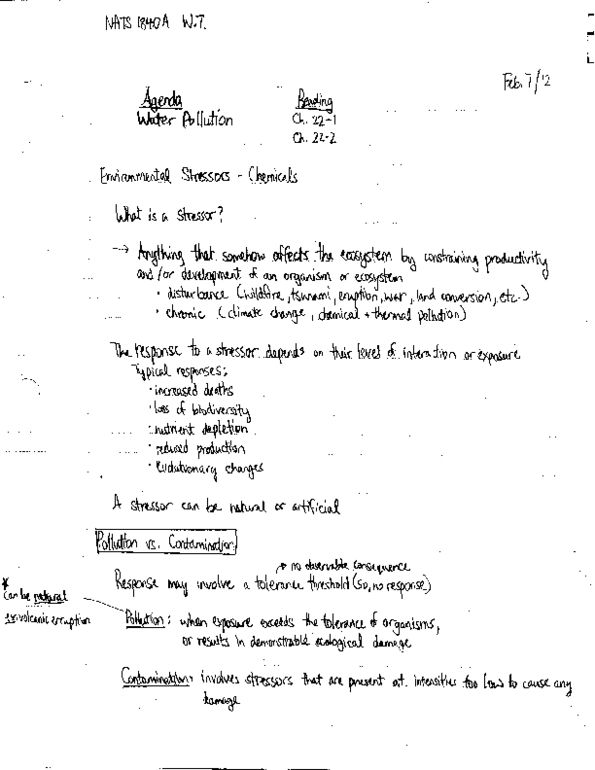 NATS 1840A W.T.
Feb. 7/12
Agenda Reading
Water Pollution Ch. 22-1
Ch. 22-2
Environmental Stressors - Chemicals
What is a stressor?
→ Anything that somehow affects the ecosystem by constraining productivity
and/or development of an organism or ecosystem
• disturbance (wildfire, tsunami, eruption, war, land conversion, etc.)
• chronic (climate change, chemical + thermal pollution)
The response to a stressor depends on their level of interaction or exposure
Typical responses:
• increased deaths
• loss of biodiversity
• nutrient depletion
• reduced production
• Evolutionary changes
A stressor can be natural or artificial
Pollution vs. Contamination
→ no observable consequence
Response may involve a tolerance threshold (so, no response)
* Can be natural
ex. volcanic erruption
Pollution: when exposure exceeds the tolerance of organisms,
or results in demonstrable ecological damage
Contamination: involves stressors that are present at intensities too low to cause any
damage